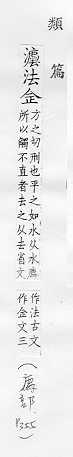 類篇
灋法佱
方乏切刑也平之如水从水廌
所以觸不直者去之从去省文
作法古文
作佱文三
(廌部
P.355)